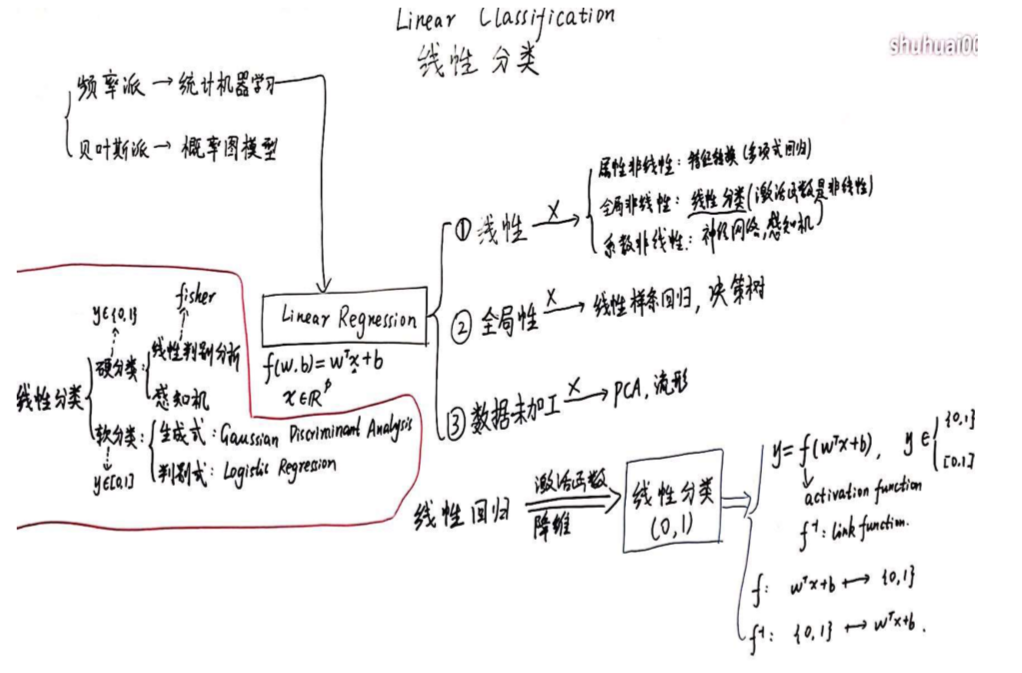 Linear Classification
线性分类
shuhuai00
频率派 → 统计机器学习
贝叶斯派 → 概率图模型
Linear Regression
f(w.b)=wᵀx+b
x∈ℝᵖ
① 线性 X→
属性非线性：特征转换(多项式回归)
全局非线性：线性分类(激活函数是非线性)
系数非线性：神经网络,感知机
② 全局性 X→ 线性样条回归，决策树
③ 数据未加工 X→ PCA, 流形
线性分类
硬分类：
y∈{0,1}
线性判别分析
fisher
感知机
软分类：
y∈[0,1]
生成式：Gaussian Discriminant Analysis
判别式：Logistic Regression
线性回归
激活函数
降维
线性分类
(0,1)
y=f(wᵀx+b), y∈ {0,1}
[0,1]
activation function
f⁻¹: link function.
f: wᵀx+b ↦ {0,1}
f⁻¹: {0,1} ↦ wᵀx+b.